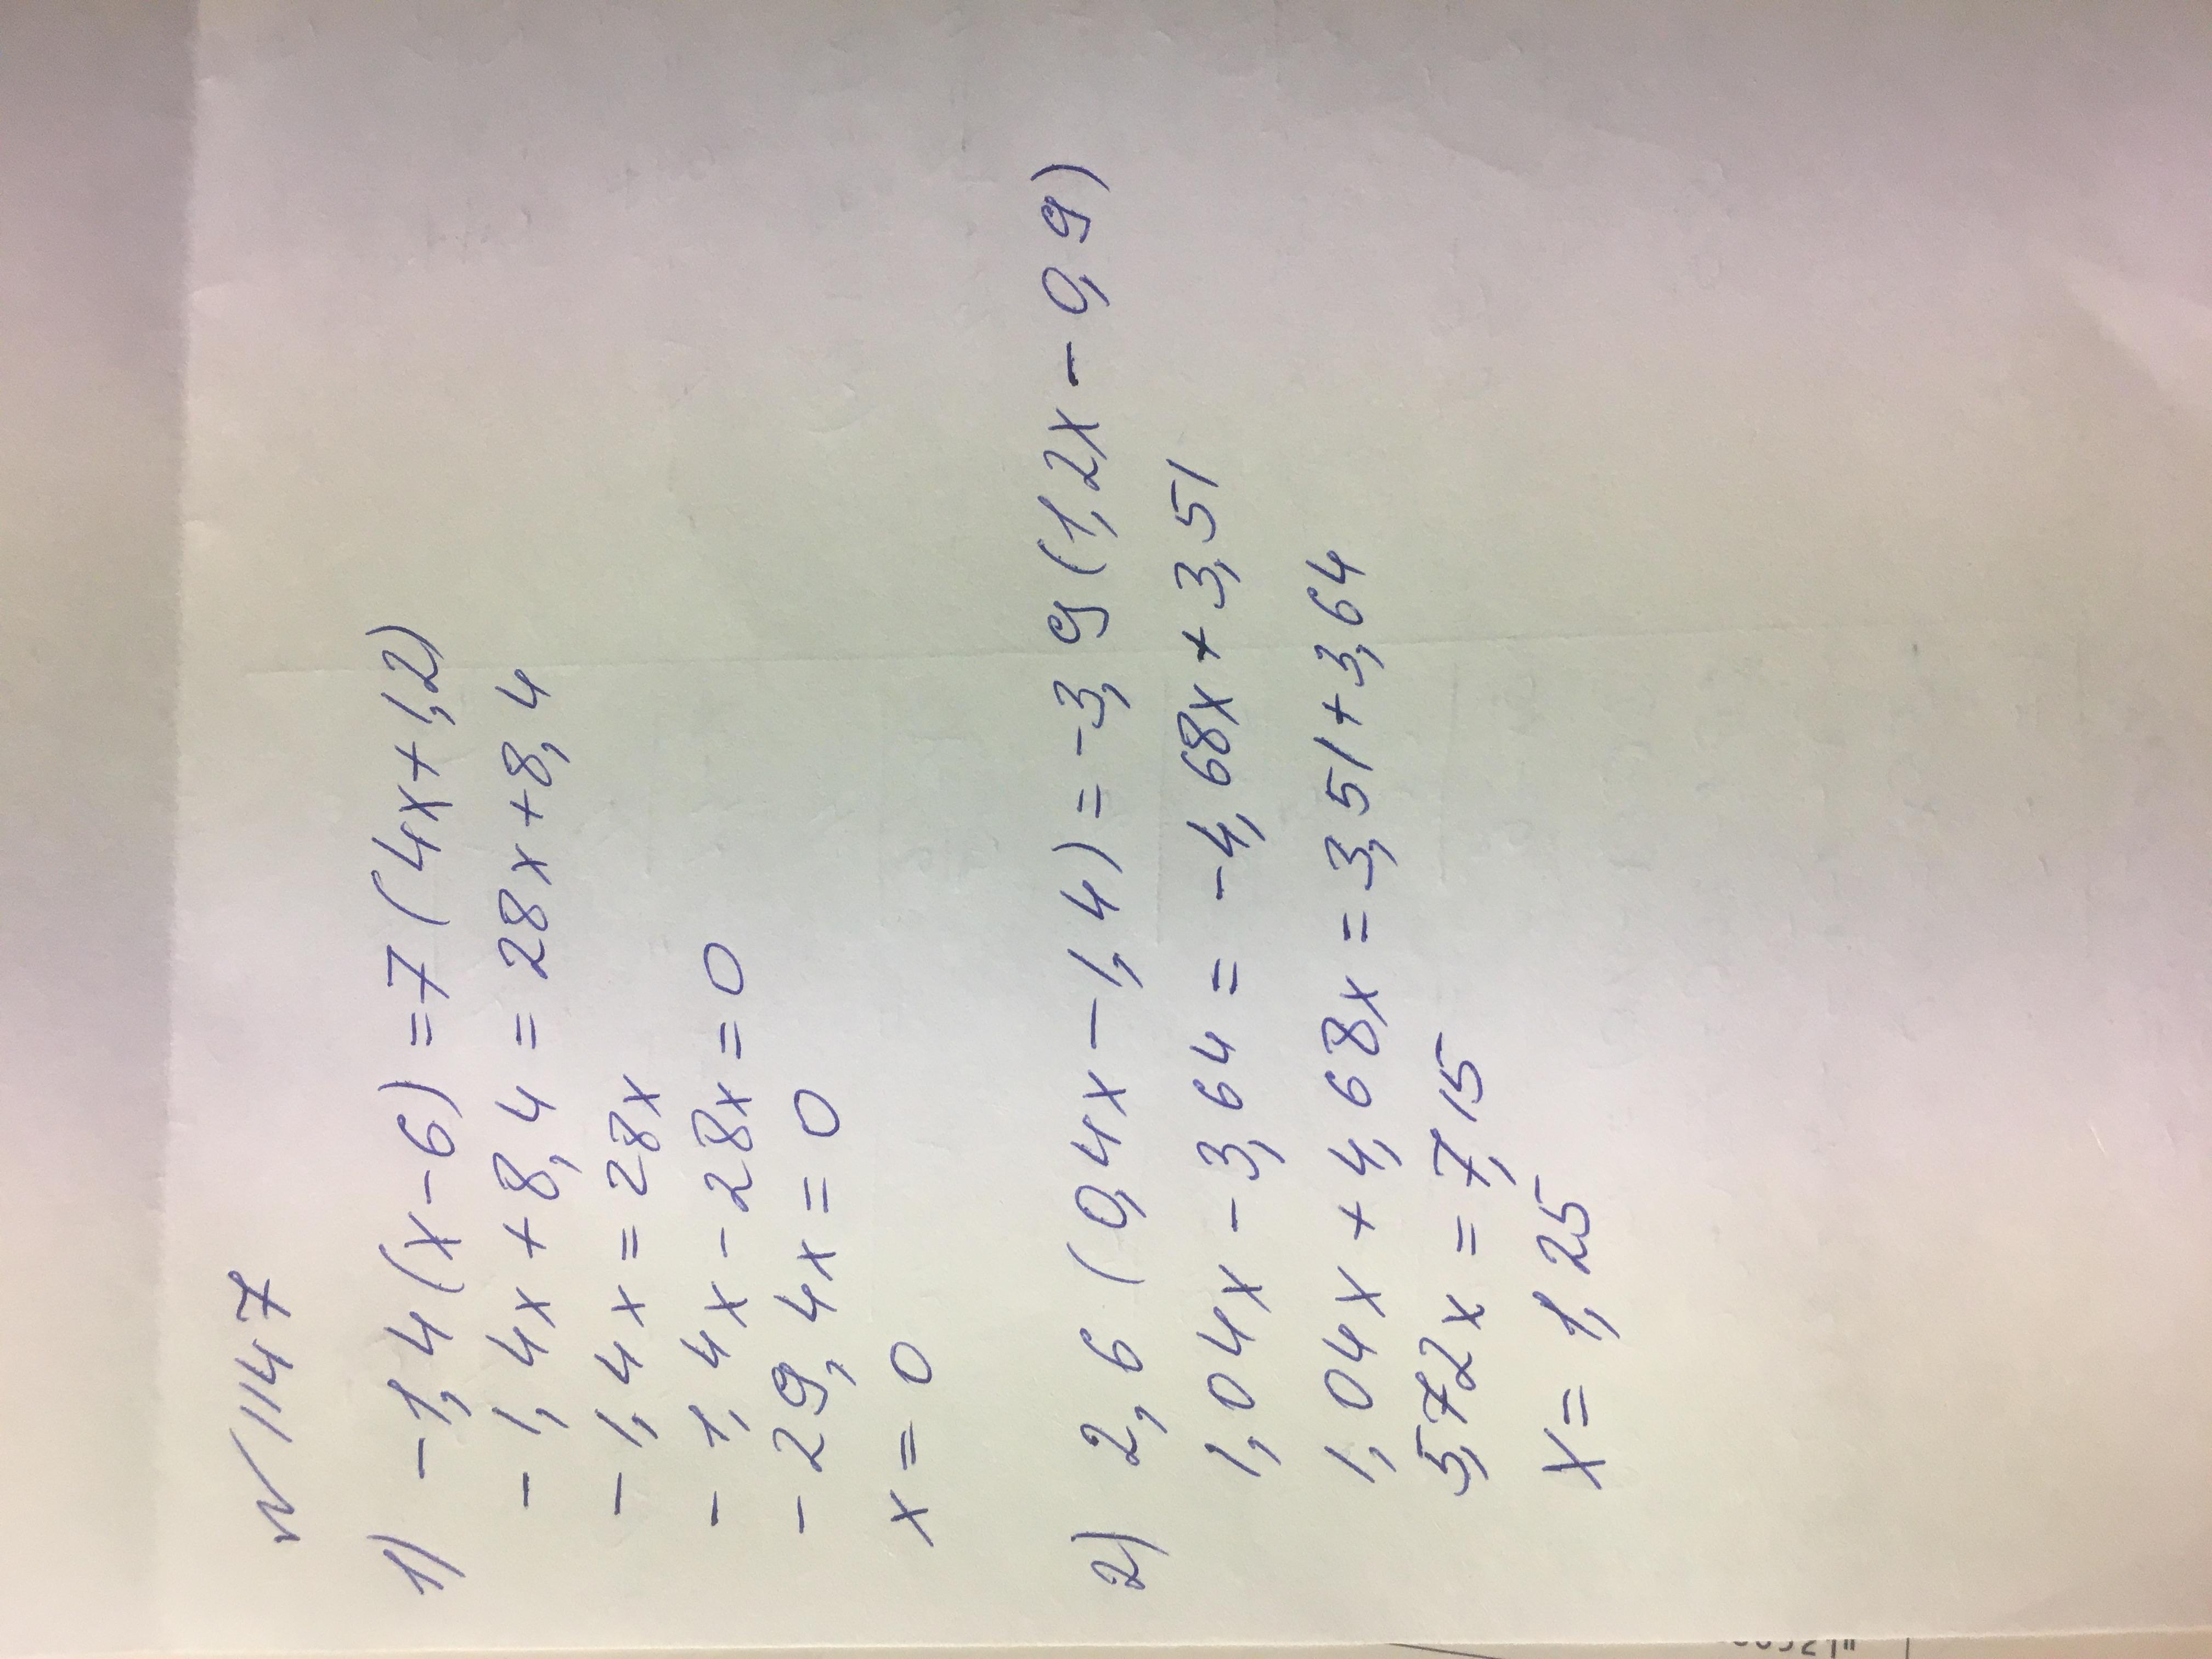 № 1147
1) -1,4(x-6)=7(4x+1,2)
-1,4x+8,4=28x+8,4
-1,4x=28x
-1,4x-28x=0
-29,4x=0
x=0
2) 2,6(0,4x-1,4)=-3,9(1,2x-0,9)
1,04x-3,64=-4,68x+3,51
1,04x+4,68x=3,51+3,64
5,72x=7,15
x=1,25